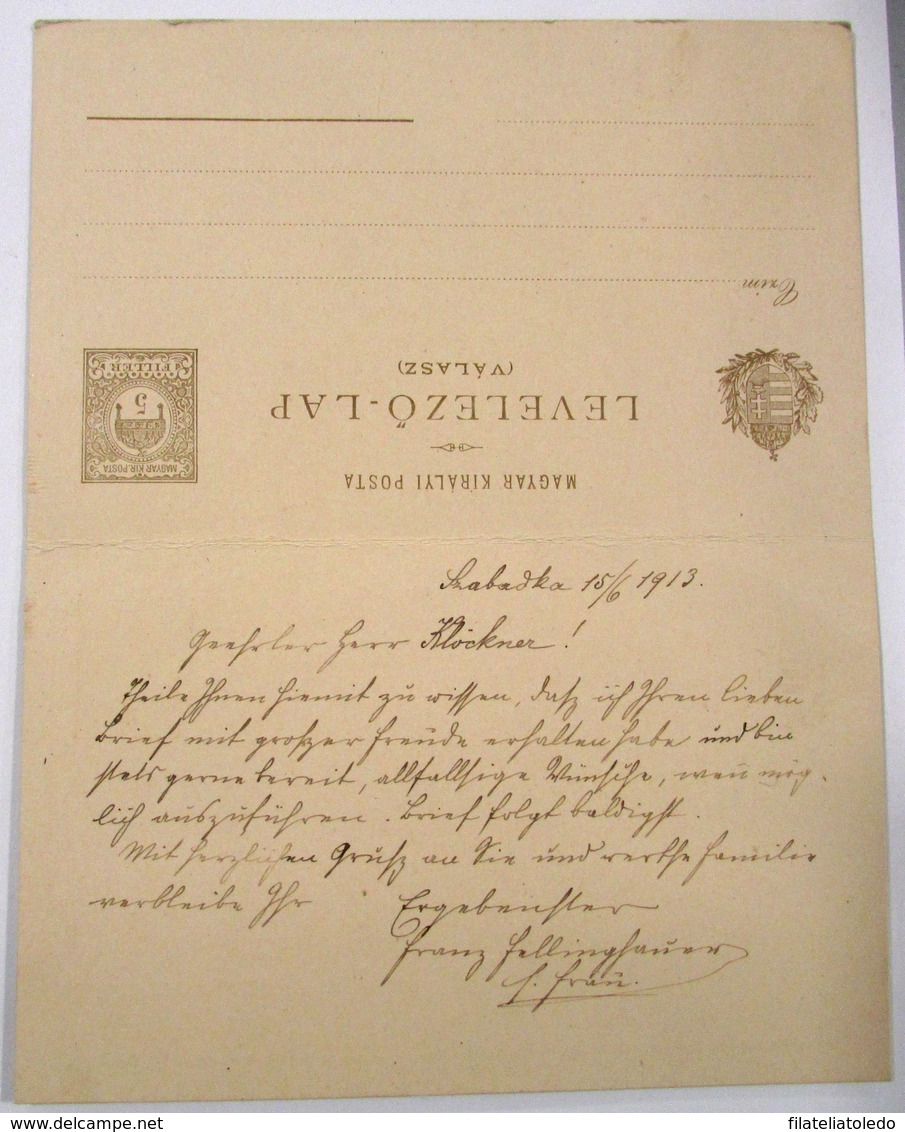 Czim
MAGYAR KIRÁLYI POSTA
LEVELEZŐ-LAP
(VÁLASZ)
MAGYAR KIR. POSTA
5
FILLÉR
Szabadka 15/6 1913.
Geehrter Herr Klöckner!
Theile Ihnen hiemit zu wissen, dasz ich Ihren lieben
Brief mit groszer Freude erhalten habe und bin
stets gerne bereit, allfallsige Wünsche, wen̄ mög-
lich auszuführen. Brief folgt baldigst.
Mit herzlichen Grusz an Sie und werthe Familie
verbleibe Ihr Ergebenster
Franz Fellinghauer
s. Frau.
delcampe.net
filateliatoledo